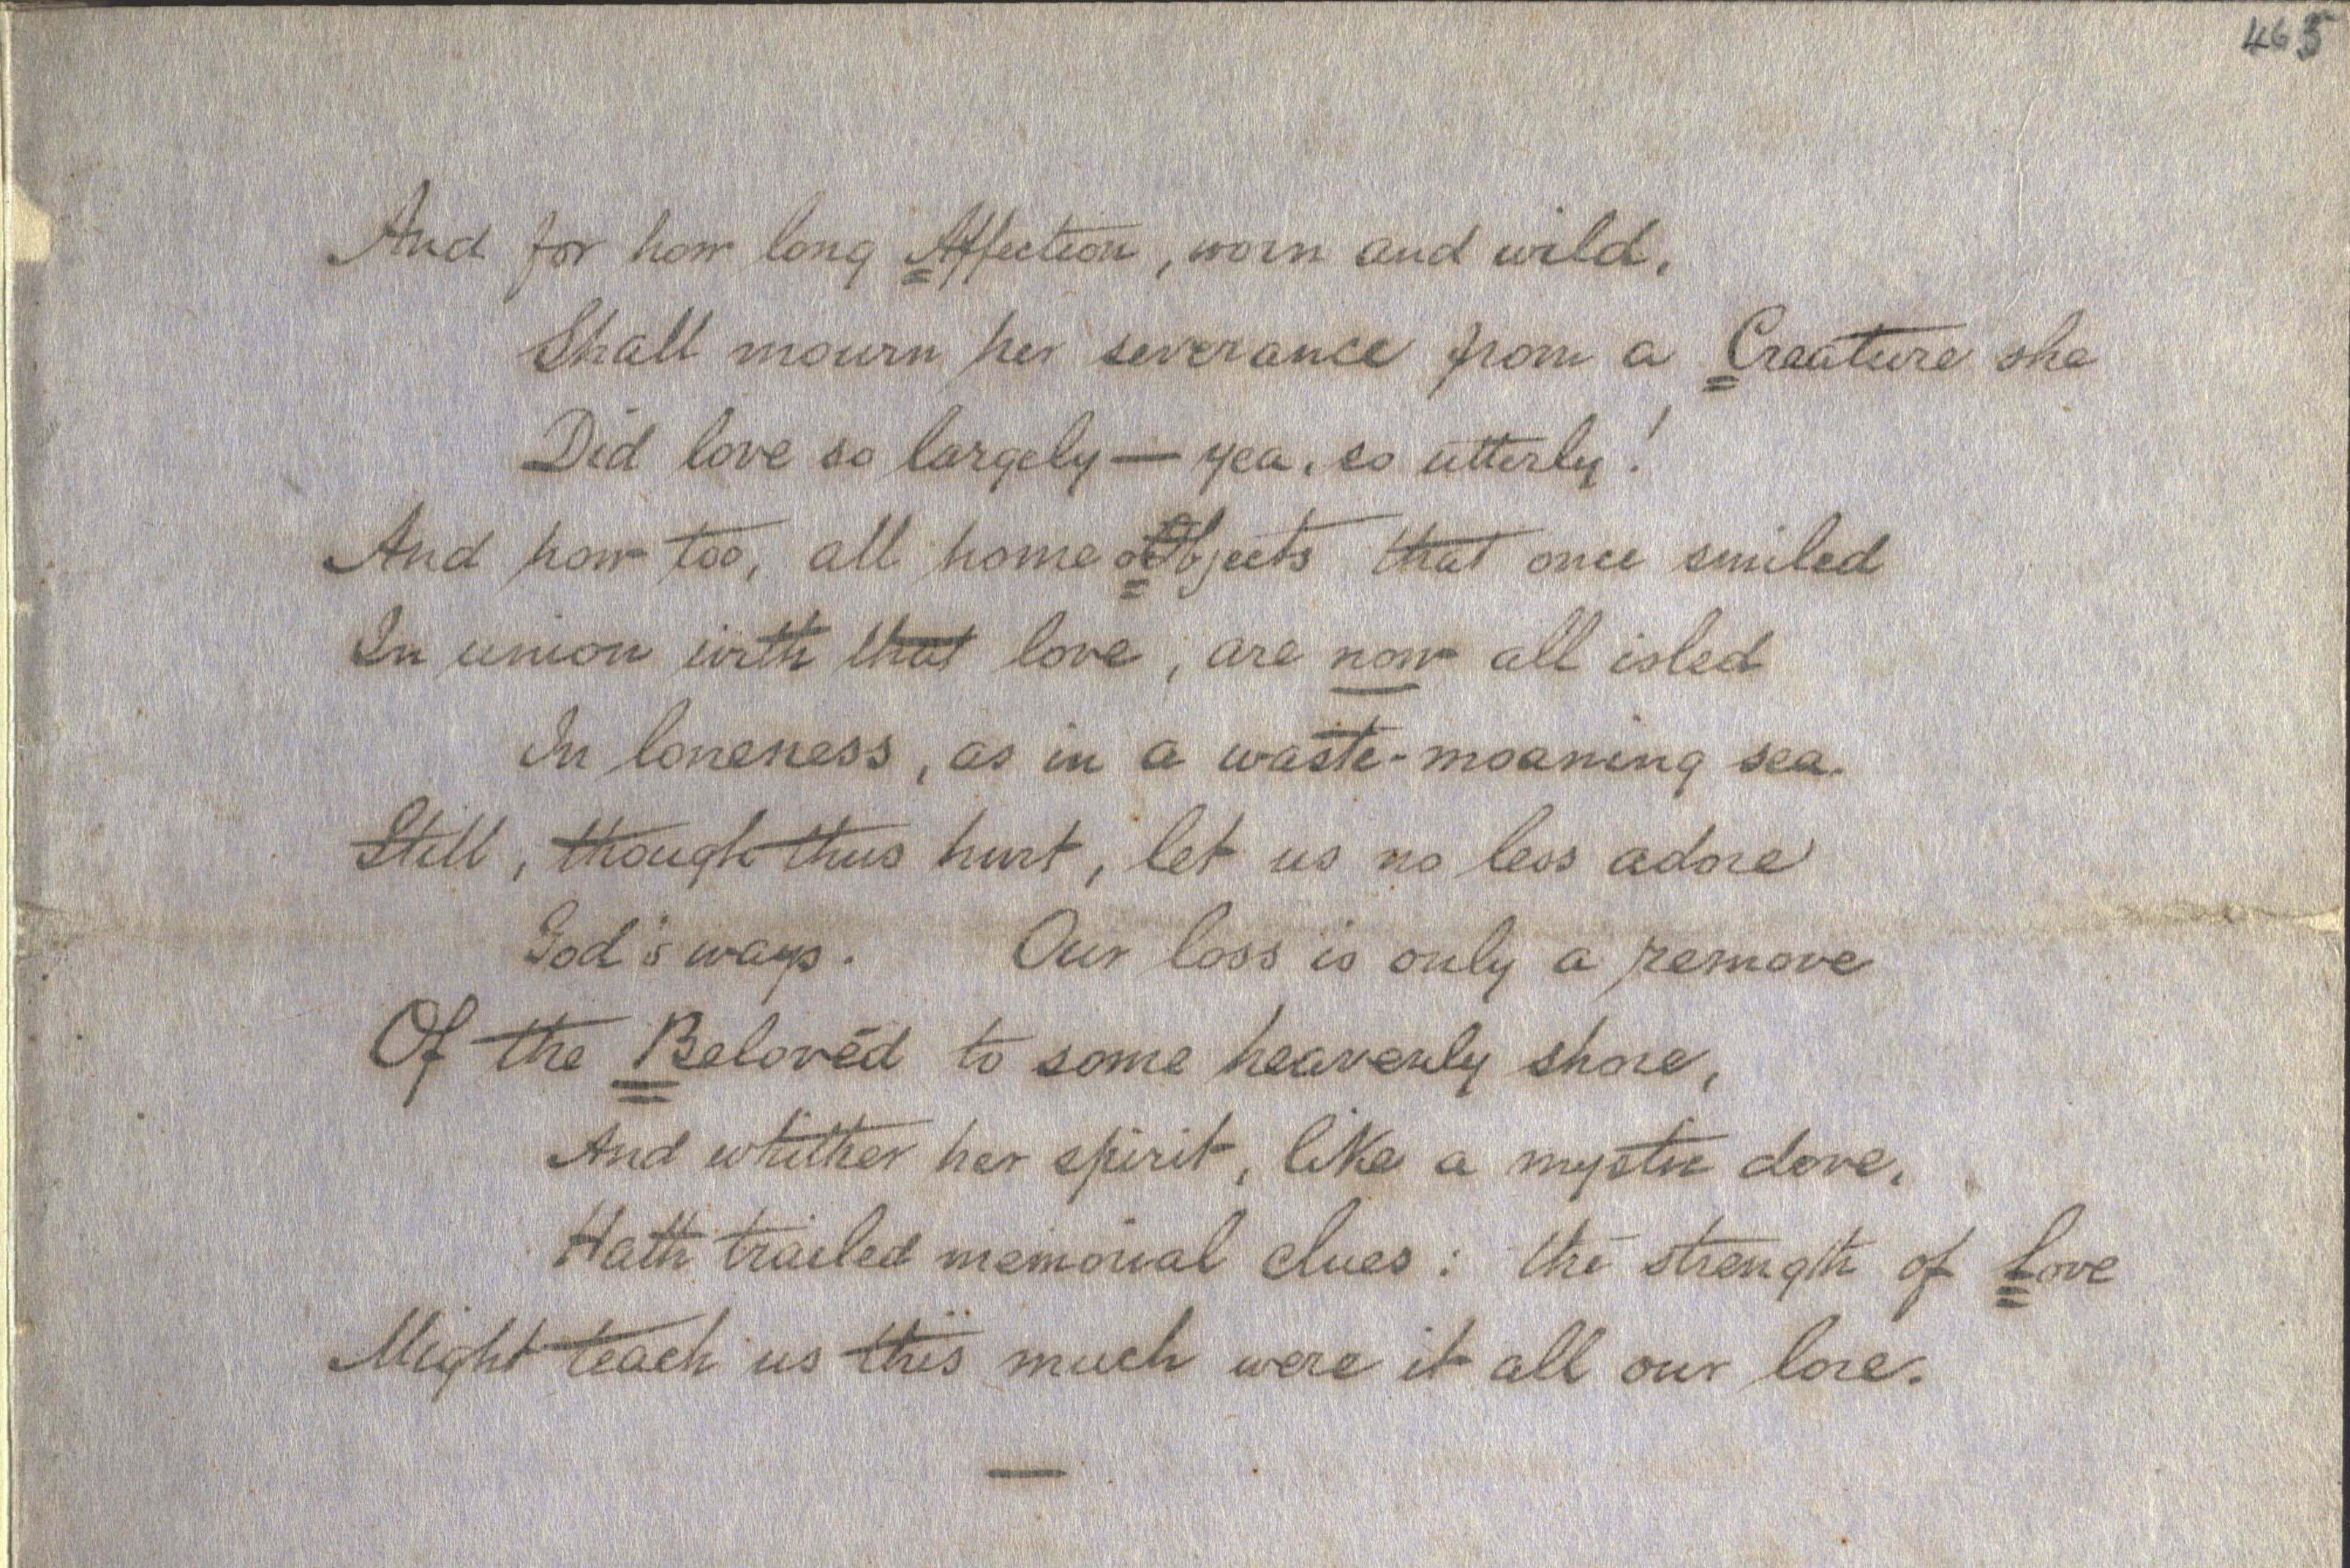 465
And for how long Affection, worn and wild,
Shall mourn her severance from a Creature she
Did love so largely — yea, so utterly!
And how too, all home Objects that once smiled
In union with that love, are now all isled
In loneness, as in a waste-moaning sea.
Still, though thus hurt, let us no less adore
God's ways. Our loss is only a remove
Of the Belovéd to some heavenly shore,
And whither her spirit, like a mystic dove,
Hath trailed memorial clues: the strength of Love
Might teach us this much were it all our lore.